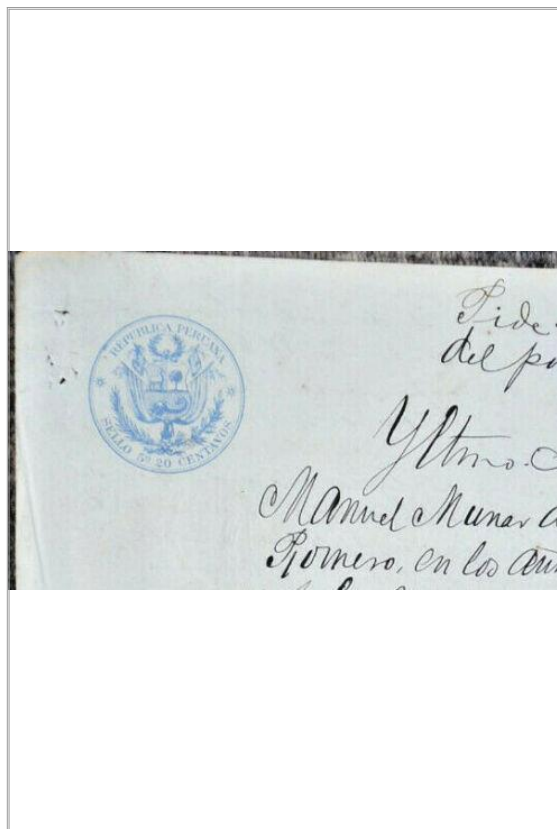 REPUBLICA PERUANA
SELLO 5º 20 CENTAVOS
Pide
del
Yltmo.
Manuel Munar
Romero, en los